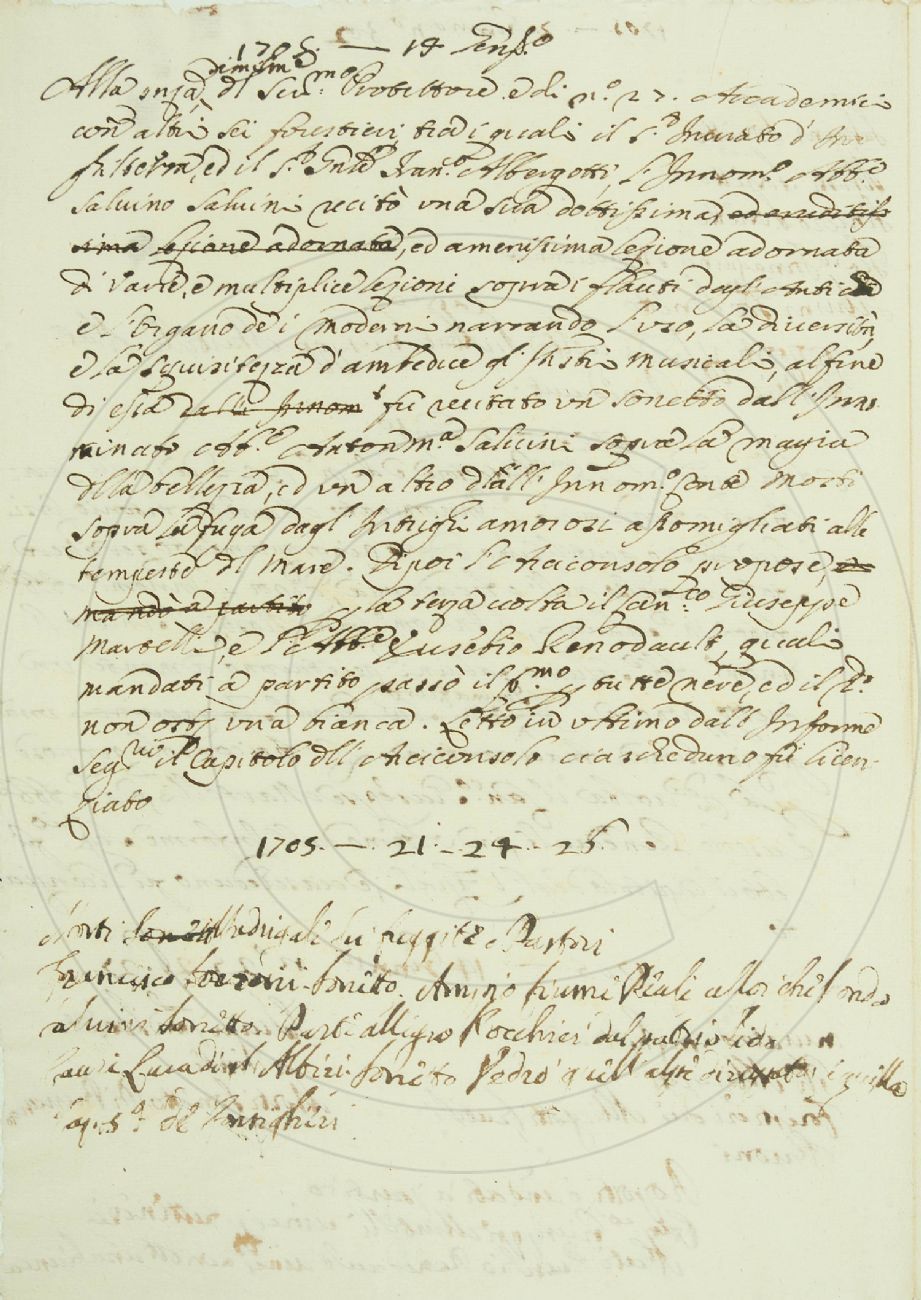 1705. — 14
dimessa
Alla dl Ser.mo Protettore e di n.o 27. Accademici
con altri sei forestieri, tra i quali il S.r Inviato d'In
ghilterra, ed il S.r Fran.o Albergotti, l'Innom.o Abb.e
Salvino Salvini recitò una sua dottissima, ed eruditis
sima lezione adornata, ed amenissima lezione adornata
di varie, e multiplice lezioni sopra i flauti degl'Antichi
e l'Organo de i moderni narrando l'uso, la diversità,
e la squisitezza d'ambedue gl'Instri musicali, al fine
di essa dall'Innom fù recitato un sonetto dall'Inno
minato Abb.e Anton M.a Salvini sopra la magia
dlla bellezza, ed un altro dall'Innom.o Conte Morti
sopra la fuga dagl'Intrighi amorosi assomigliati alle
tempeste dl Mare. Dipoi l'Arciconsolo propose, e
mandò a partito p la terza volta il Giuseppe
Martelli, e l'Abb.e Eusebio Renodault, quali
mandati à partito passò il p.mo p tutte nere, ed il 2.o
non ost.e una bianca. Letto in ultimo dall'Informe
Seg.rio il Capitolo dll'Arciconsolo ciascheduno fù licen-
ziato
1705. — 21. — 24. 26.
Morti Madrigale Sù fuggite o Pastori
Francesco Sonetto. fiume Reale allor che l'onda
Salvini Sonetto. Parti allegro dal patrio lido
Albizi. Sonetto Vedrò quell'